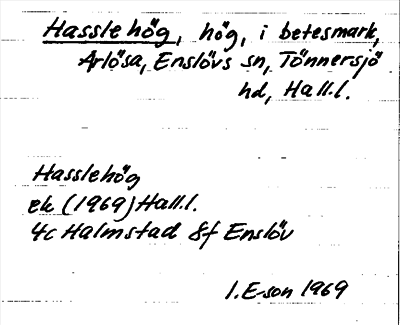 Hassle hög, hög, i betesmark,
Årlösa, Enslövs sn, Tönnersjö
hd, Hall.l.
Hasslehög
ek (1969) Hall.l.
4c Halmstad 8f Enslöv
I. E-son 1969